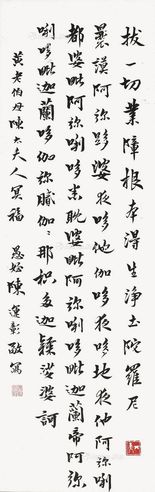 拔一切業障根本得生净土陀羅尼
曩謨阿弥哆婆夜哆他伽哆夜哆地夜他阿弥唎
都婆毗阿弥唎哆悉耽婆毗阿弥唎哆毗迦蘭帝阿弥
唎哆毗迦蘭哆伽弥膩伽伽那枳多迦隸娑婆訶
黄老伯母陳太夫人冥福
愚姪陳運彰敬寫